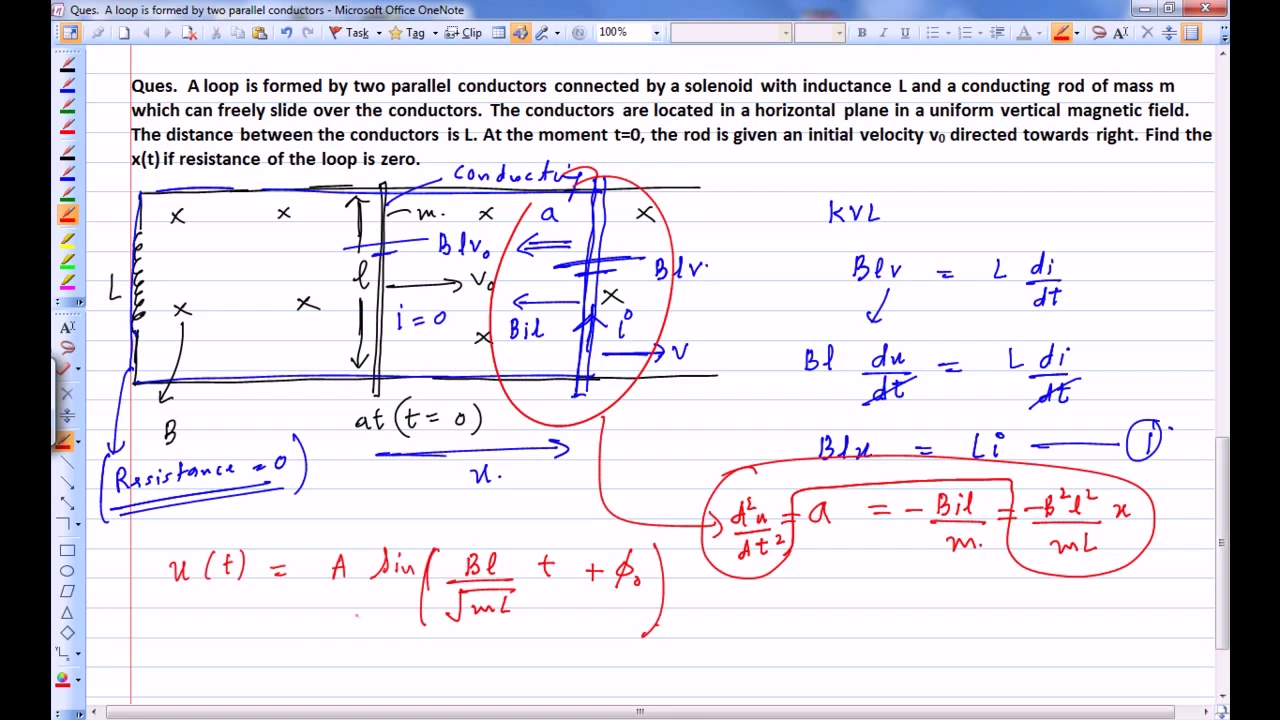 Ques. A loop is formed by two parallel conductors - Microsoft Office OneNote
Task Tag Clip 100% B I U A
Ques. A loop is formed by two parallel conductors connected by a solenoid with inductance L and a conducting rod of mass m
which can freely slide over the conductors. The conductors are located in a horizontal plane in a uniform vertical magnetic field.
The distance between the conductors is L. At the moment t=0, the rod is given an initial velocity v₀ directed towards right. Find the
x(t) if resistance of the loop is zero.
conducting
x x m. x a x KVL
Blv₀ Blv = L di/dt
L l v₀ Blv.
x x i = 0 x Bil x i v
Bl dx/dt = L di/dt
B at (t = 0)
Blx = Li ① 
(Resistance = 0) x.
d²x/dt² = a = - Bil/m. = -B²l²/mL x
x(t) = A sin(Bl/√mL t + φ₀)